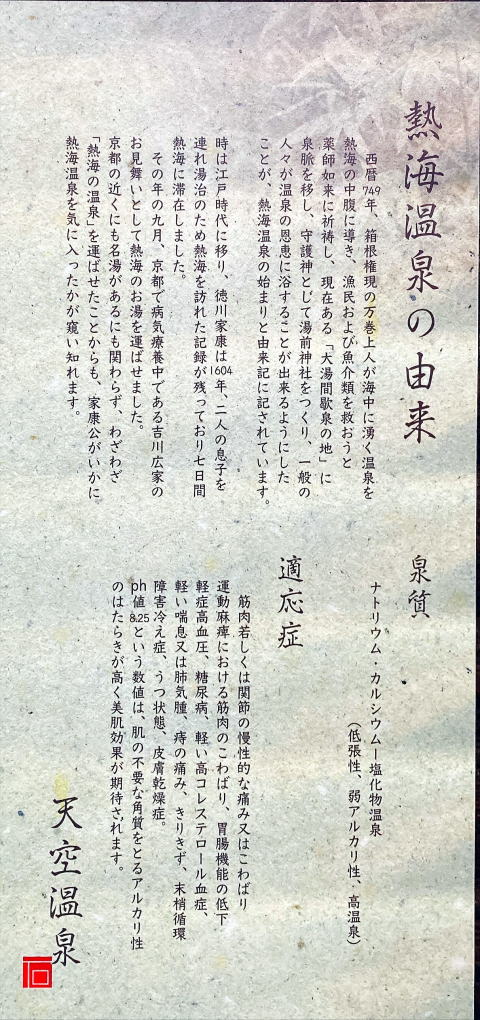 熱海温泉の由来
西暦749年、箱根権現の万巻上人が海中に湧く温泉を
熱海の中腹に導き、漁民および魚介類を救おうと
薬師如来に祈祷し、現在ある「大湯間歇泉の地」に
泉脈を移し、守護神として湯前神社をつくり、一般の
人々が温泉の恩恵に浴することが出来るようにした
ことが、熱海温泉の始まりと由来記に記されています。
時は江戸時代に移り、徳川家康は1604年、二人の息子を
連れ湯治のため熱海を訪れた記録が残っており七日間
熱海に滞在しました。
その年の九月、京都で病気療養中である吉川広家の
お見舞いとして熱海のお湯を運ばせました。
京都の近くにも名湯があるにも関わらず、わざわざ
「熱海の温泉」を運ばせたことからも、家康公がいかに
熱海温泉を気に入ったかが窺い知れます。
泉質
ナトリウム・カルシウム―塩化物温泉
(低張性、弱アルカリ性、高温泉)
適応症
筋肉若しくは関節の慢性的な痛み又はこわばり
運動麻痺における筋肉のこわばり、胃腸機能の低下
軽症高血圧、糖尿病、軽い高コレステロール血症、
軽い喘息又は肺気腫、痔の痛み、きりきず、末梢循環
障害冷え症、うつ状態、皮膚乾燥症。
ph値8.25という数値は、肌の不要な角質をとるアルカリ性
のはたらきが高く美肌効果が期待されます。
天空温泉